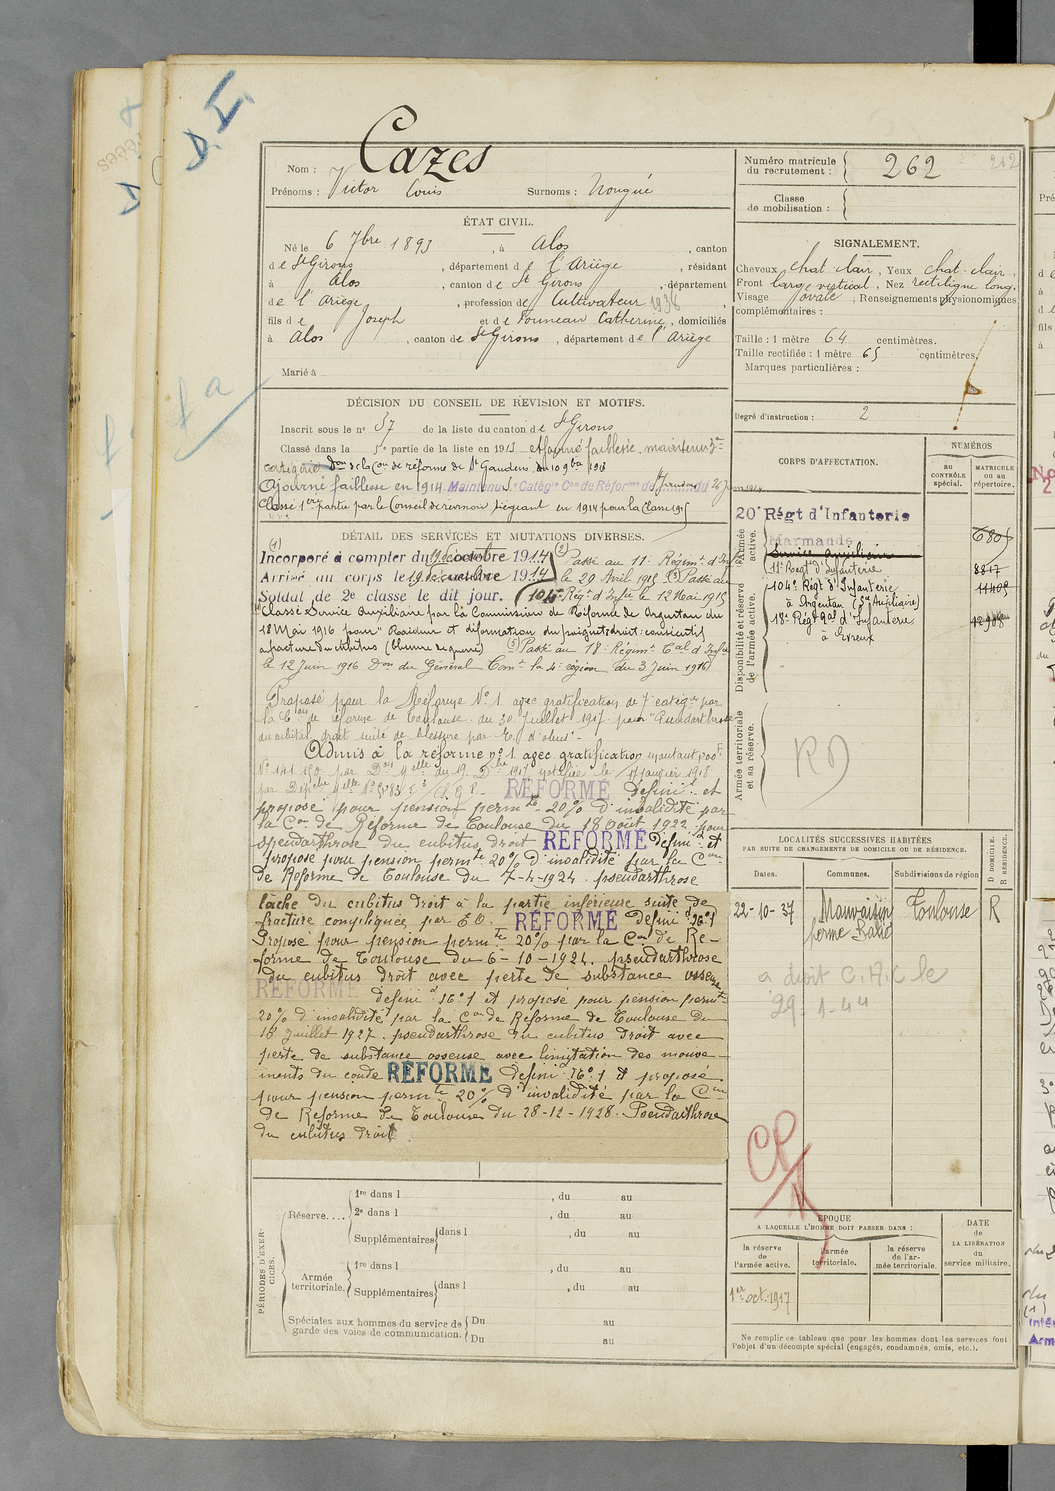 D. I.
fa
Cazes
Nom :
Prénoms : Victor Louis Surnoms : Nougué
Numéro matricule
du recrutement : 262
262
Classe
de mobilisation :
ÉTAT CIVIL.
Né le 6 7bre 1893, à Alos, canton
de St Girons, département de l'Ariège, résidant
à Alos, canton de St Girons, département
de l'Ariège, profession de Cultivateur 1936
fils de Joseph et de Founeau Catherine, domiciliés
à Alos, canton de St Girons, département de l'Ariège
Marié à
SIGNALEMENT.
Cheveux chat. clair, Yeux chat. clair,
Front large vertical, Nez rectiligne long,
Visage ovale; Renseignements physionomiques
complémentaires :
Taille : 1 mètre 64 centimètres.
Taille rectifiée : 1 mètre 65 centimètres.
Marques particulières :
Degré d'instruction : 2
DÉCISION DU CONSEIL DE REVISION ET MOTIFS.
Inscrit sous le n° 57 de la liste du canton de St Girons
Classé dans la 5e partie de la liste en 1913 ajourné faiblesse. maintenu 3e
catégorie Don de la Con de réforme de St Gaudens du 10 9bre 1913
Ajourné faiblesse en 1914. Maintenu Catégie Con de Réforme de St Girons du 26 juin 1914
Classé 1ere partie par le Conseil de révision siégeant en 1914 pour la classe 1915
DÉTAIL DES SERVICES ET MUTATIONS DIVERSES.
(1)
Incorporé à compter du 19 décembre 1914
Arrivé au corps le 19 décembre 1914
Soldat de 2e classe le dit jour.
(2) Passé au 11e Régimt d'Infie
le 20 Avril 1915 (3) Passé au
104e Régt d'Infie le 12 Mai 1915
Classé Service Auxiliaire par la Commission de Réforme de Argentan du
18 Mai 1916 pour "Raideur et déformation du poignet droit consécutifs
a fracture du cubitus (blessure de guerre) (5) Passé au 18e Régimt Cal d'Infie
le 12 Juin 1916 Don du Général Comt la 4e région du 3 Juin 1916
Proposé pour la Réforme N° 1 avec gratification de 7e catégie par
la Con de réforme de Toulouse du 30 Juillet 1917 pour "Pseudarthrose
du cubital droit suite de blessure par E. d'obus".
Admis à la réforme n° 1 avec gratification montant 200 F
RÉFORMÉ défini. et
proposé pour pension permte 20% d'invalidité par
la Con de Réforme de Toulouse du 18 août 1922 pour
pseudarthrose du cubitus droit RÉFORMÉ défini. et
proposé pour pension permte 20% d'invalidité par la Con
de Réforme de Toulouse du 7-4-1924. pseudarthrose
lâche du cubitus droit à la partie inférieure suite de
fracture compliquée par EO. RÉFORMÉ défini. n° 1
Proposé pour pension permte 20% par la Con de Ré-
forme de Toulouse du 6-10-1924. pseudarthrose
du cubitus droit avec perte de substance osseuse
RÉFORMÉ défini n° 1 et proposé pour pension permte
20% d'invalidité par la Con de Réforme de Toulouse du
18 Juillet 1927. pseudarthrose du cubitus droit avec
perte de substance osseuse avec limitation des mouve-
ments du coude RÉFORMÉ défini n° 1 et proposé
pour pension permte 20% d'invalidité par la Con
de Réforme de Toulouse du 28-12-1928. Pseudarthrose
du cubitus droit
CORPS D'AFFECTATION.
NUMÉROS
AU CONTRÔLE spécial.
MATRICULE ou au répertoire.
Armée active.
20e Régt d'Infanterie
Marmande
680
Service auxiliaire
Disponibilité et réserve de l'armée active.
11e Régt d'Infanterie
104e Régt d'Infanterie
à Argentan (Sce Auxiliaire)
18e Régt Cal d'Infanterie
à Evreux
Armée territoriale et sa réserve.
RD
LOCALITÉS SUCCESSIVES HABITÉES
PAR SUITE DE CHANGEMENTS DE DOMICILE OU DE RÉSIDENCE.
D DOMICILE. R RÉSIDENCE.
Dates. Communes. Subdivisions de région
22-10-37 Mauvaisin Toulouse R
ferme
a droit C.A.C le
29-1-44
PÉRIODES D'EXERCICES.
Réserve....
1re dans l , du au
2e dans l , du au
Supplémentaires dans l , du au
Armée territoriale.
1re dans l , du au
Supplémentaires dans l , du au
Spéciales aux hommes du service de
garde des voies de communication.
Du au
Du au
ÉPOQUE
A LAQUELLE L'HOMME DOIT PASSER DANS :
la réserve de l'armée active.
l'armée territoriale.
la réserve de l'armée territoriale.
DATE
de
LA LIBÉRATION
du
service militaire.
1er oct. 1917
Ne remplir ce tableau que pour les hommes dont les services font
l'objet d'un décompte spécial (engagés, condamnés, omis, etc.).